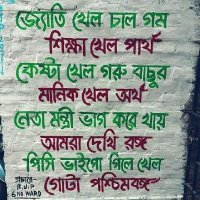 জ্যোতি খেল চাল গম
শিক্ষা খেল পার্থ
কেষ্টা খেল গরু বাছুর
মানিক খেল অর্থ
নেতা মন্ত্রী ভাগ করে খায়
আমরা দেখি রঙ্গ
পিসি ভাইপো গিলে খেল
গোটা পশ্চিমবঙ্গ
প্রচারে-
B.J.P
6 NO WARD